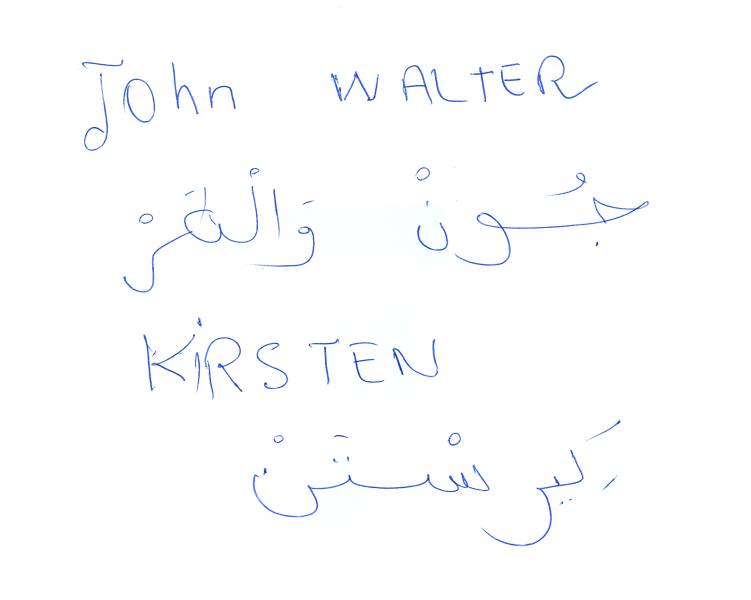 John WALTER
جُونْ وَالْتَرْ
KIRSTEN
كِيرسْتَنْ